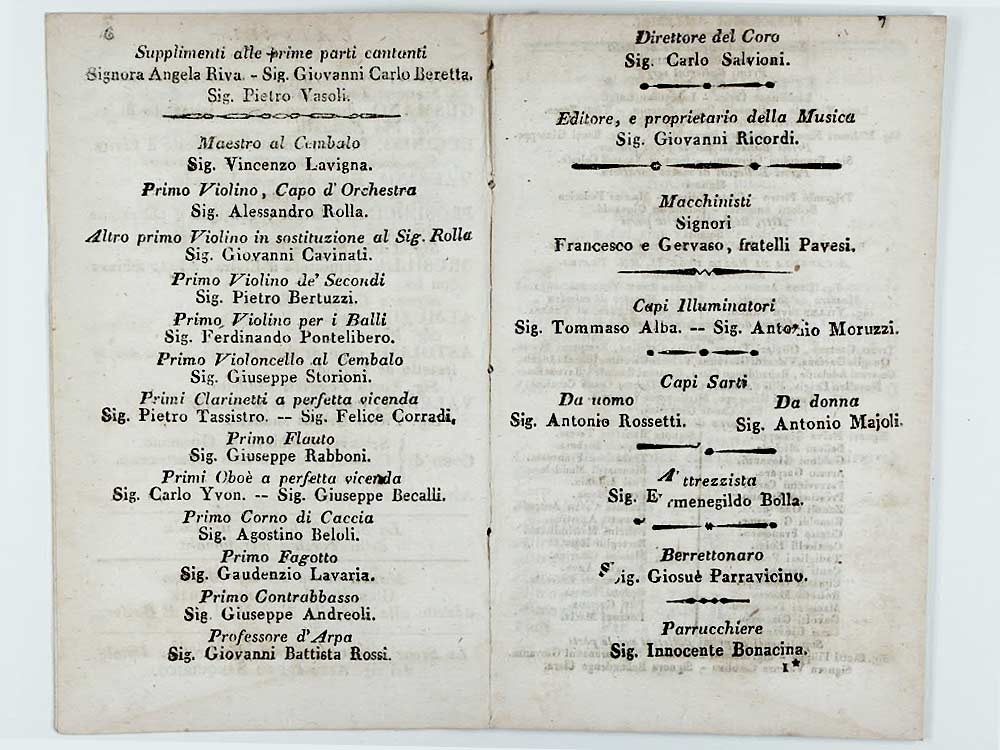 6
Supplimenti alle prime parti cantanti
Signora Angela Riva. - Sig. Giovanni Carlo Beretta.
Sig. Pietro Vasoli.
Maestro al Cembalo
Sig. Vincenzo Lavigna.
Primo Violino, Capo d'Orchestra
Sig. Alessandro Rolla.
Altro primo Violino in sostituzione al Sig. Rolla
Sig. Giovanni Cavinati.
Primo Violino de' Secondi
Sig. Pietro Bertuzzi.
Primo Violino per i Balli
Sig. Ferdinando Pontelibero.
Primo Violoncello al Cembalo
Sig. Giuseppe Storioni.
Primi Clarinetti a perfetta vicenda
Sig. Pietro Tassistro. -- Sig. Felice Corradi.
Primo Flauto
Sig. Giuseppe Rabboni.
Primi Oboè a perfetta vicenda
Sig. Carlo Yvon. -- Sig. Giuseppe Becalli.
Primo Corno di Caccia
Sig. Agostino Beloli.
Primo Fagotto
Sig. Gaudenzio Lavaria.
Primo Contrabbasso
Sig. Giuseppe Andreoli.
Professore d'Arpa
Sig. Giovanni Battista Rossi.
7
Direttore del Coro
Sig. Carlo Salvioni.
Editore, e proprietario della Musica
Sig. Giovanni Ricordi.
Macchinisti
Signori
Francesco e Gervaso, fratelli Pavesi.
Capi Illuminatori
Sig. Tommaso Alba. -- Sig. Antonio Moruzzi.
Capi Sarti
Da uomo
Sig. Antonio Rossetti.
Da donna
Sig. Antonio Majoli.
Attrezzista
Sig. Ermenegildo Bolla.
Berrettonaro
Sig. Giosuè Parravicino.
Parrucchiere
Sig. Innocente Bonacina.
1*